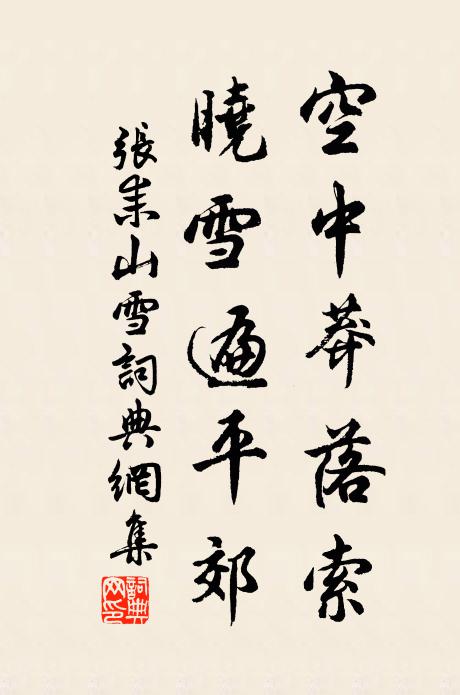 空中莽落索
曉雪遍平郊
張耒山雪詞典網集
詞典
网印